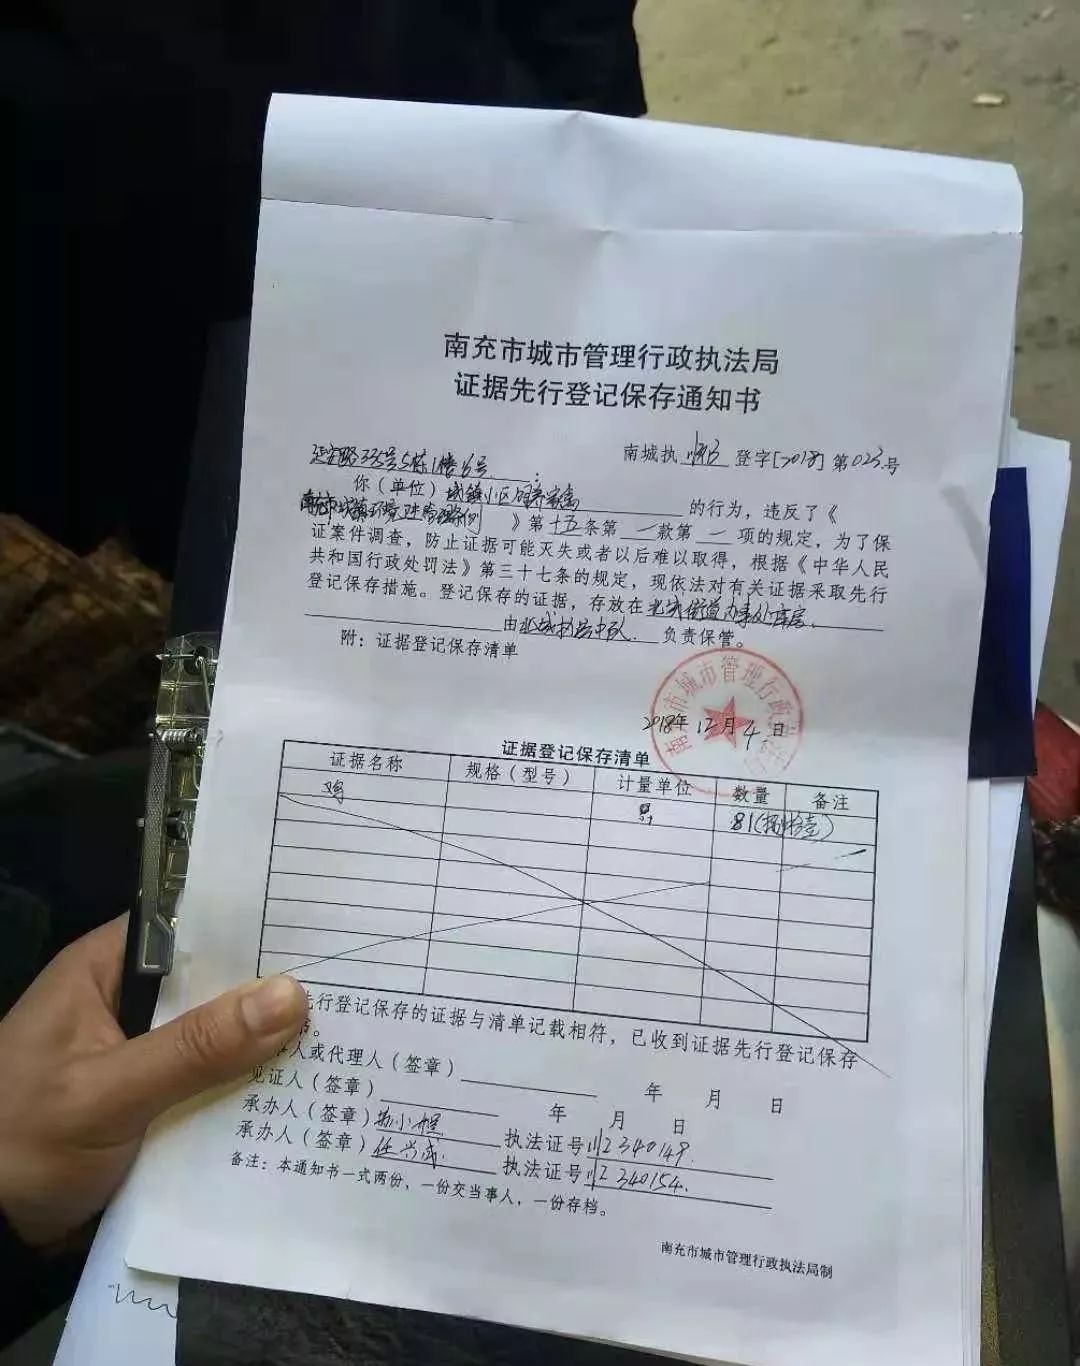 南充市城市管理行政执法局
证据先行登记保存通知书
南城执 登字[2018]第023号
延安路335号5栋1楼 号
你（单位）城镇小区饲养家禽 的行为，违反了《
南充市城镇环境卫生管理条例 》第十五条第一款第一项的规定，为了保
证案件调查，防止证据可能灭失或者以后难以取得，根据《中华人民
共和国行政处罚法》第三十七条的规定，现依法对有关证据采取先行
登记保存措施。登记保存的证据，存放在北城街道办事处库房
由北城执法中队 负责保管。
附：证据登记保存清单
南 市城市管理行政执法局
2018年12月4日
证据登记保存清单
证据名称 规格（型号） 计量单位 数量 备注
鸡 只 81(捌拾壹)
先行登记保存的证据与清单记载相符，已收到证据先行登记保存
书。
人或代理人（签章） 年 月 日
见证人（签章） 年 月 日
承办人（签章） 小 执法证号川Z340149
承办人（签章）任兴成 执法证号川Z340154
备注：本通知书一式两份，一份交当事人，一份存档。
南充市城市管理行政执法局制